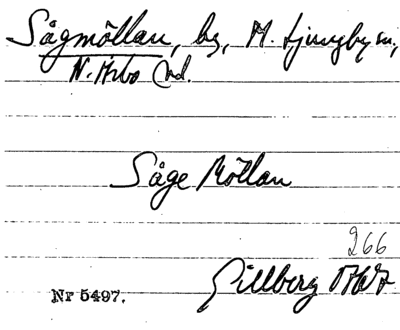 Sågmöllan, by, M. Ljungby sn,
N. Åsbo hd.
Såge Möllan
266
Gillberg
Nr 5497.